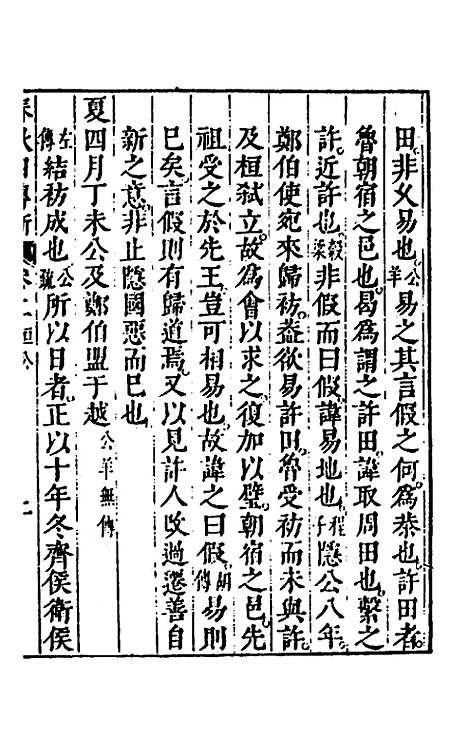 田非久易也公羊易之其言假之何爲恭也許田者
魯朝宿之邑也曷爲謂之許田諱取周田也繫之
許近許也穀梁非假而曰假諱易地也程子隱公八年
鄭伯使宛來歸祊蓋欲易許田魯受祊而未與許
及桓弒立故爲會以求之復加以璧朝宿之邑先
祖受之於先王豈可相易也故諱之曰假胡傳易則
巳矣言假則有歸道焉又以見許人改過遷善自
新之意非止隱國惡而巳也
夏四月丁未公及鄭伯盟于越公羊無傳
左傳結祊成也公疏所以日者正以十年冬齊侯衛侯
卷二桓公